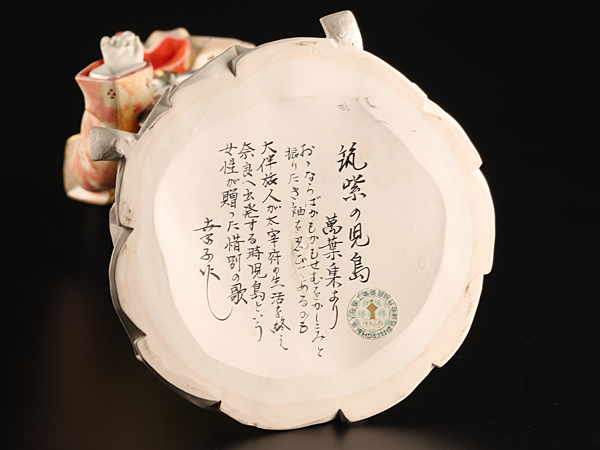 筑紫の児島
萬葉集より
おゝならばかもかもせむをかしこみと
振りたき袖を忍びてあるかも
大伴旅人が太宰府の生活を終え
奈良へ出発する時児島という
女性が贈った惜別の歌
幸子作